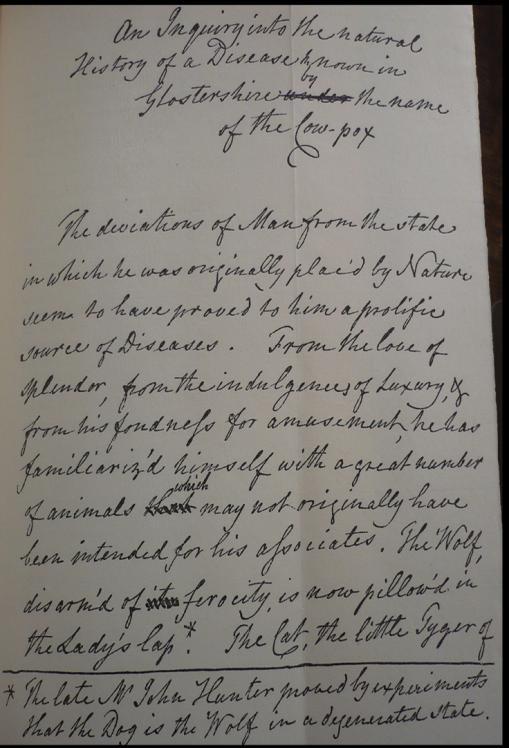 An Inquiry into the natural
History of a Disease known in
by
Glostershire under the name
of the Cow-pox
The deviations of Man from the state
in which he was originally plac'd by Nature
seem to have proved to him a prolific
source of Diseases. From the love of
splendor, from the indulgences of Luxury, &
from his fondness for amusement, he has
familiariz'd himself with a great number
which
of animals that may not originally have
been intended for his associates. The Wolf,
disarm'd of its ferocity, is now pillow'd in
the Lady's lap*. The Cat, the little Tyger of
* The late Mr John Hunter proved by experiments
that the Dog is the Wolf in a degenerated state.